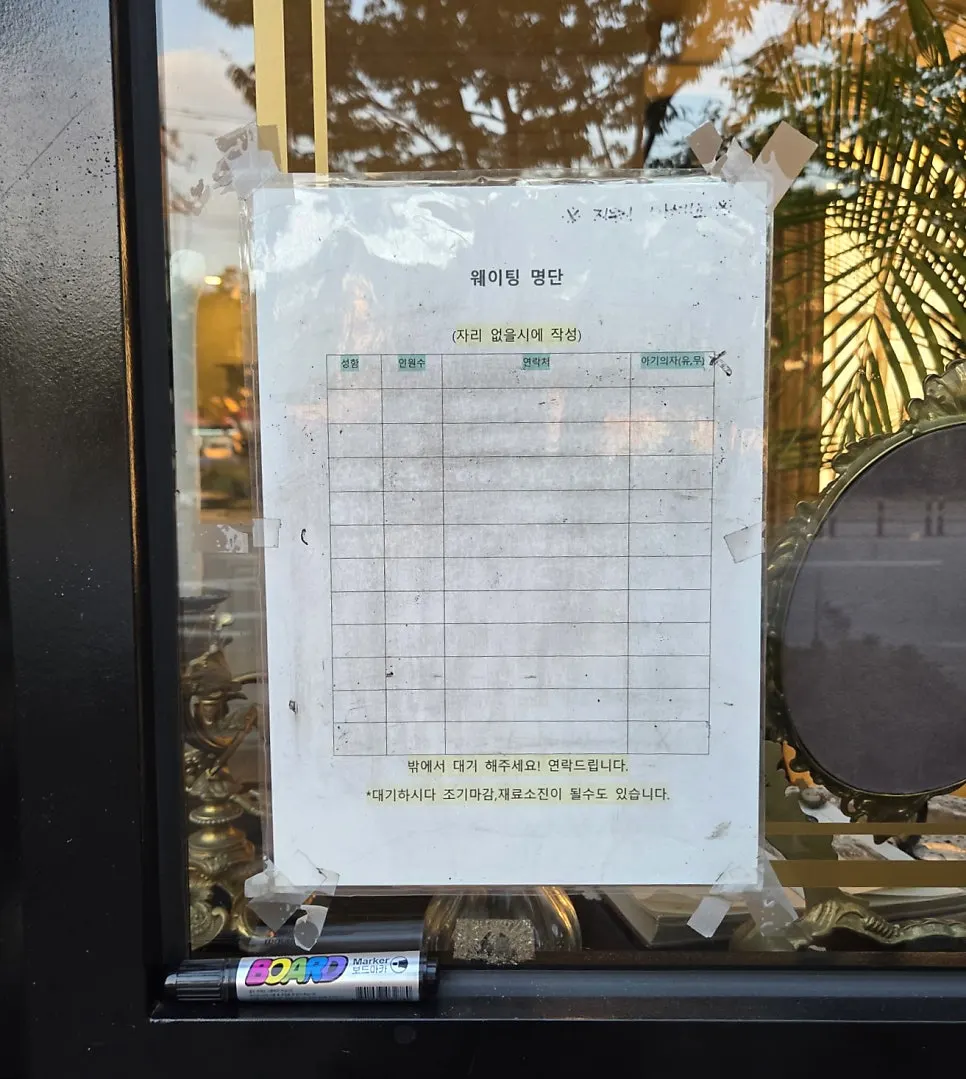 웨이팅 명단
(자리 없을시에 작성)
성함 인원수 연락처 아기의자(유,무)
밖에서 대기 해주세요! 연락드립니다.
*대기하시다 조기마감,재료소진이 될수도 있습니다.
BOARD Marker
보드마카